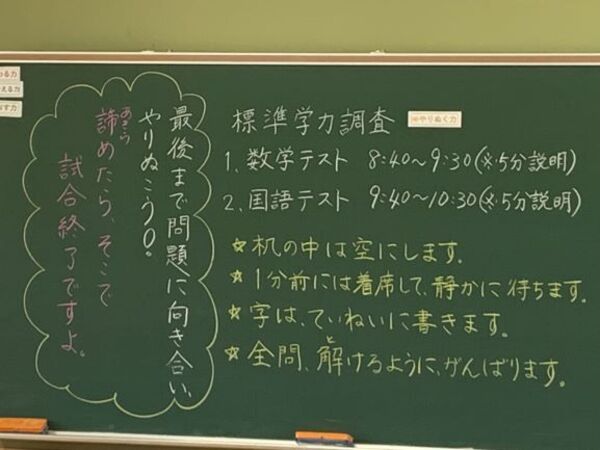 標準学力調査
④やりぬく力
1. 数学テスト 8:40~9:30(※5分説明)
2. 国語テスト 9:40~10:30(※5分説明)
☆机の中は空にします。
☆1分前には着席して、静かに待ちます。
☆字は、ていねいに書きます。
☆全問、解けるように、がんばります。
と
最後まで問題に向き合い、
やりぬこう!!
諦めたら、そこで
あきら
試合終了ですよ。